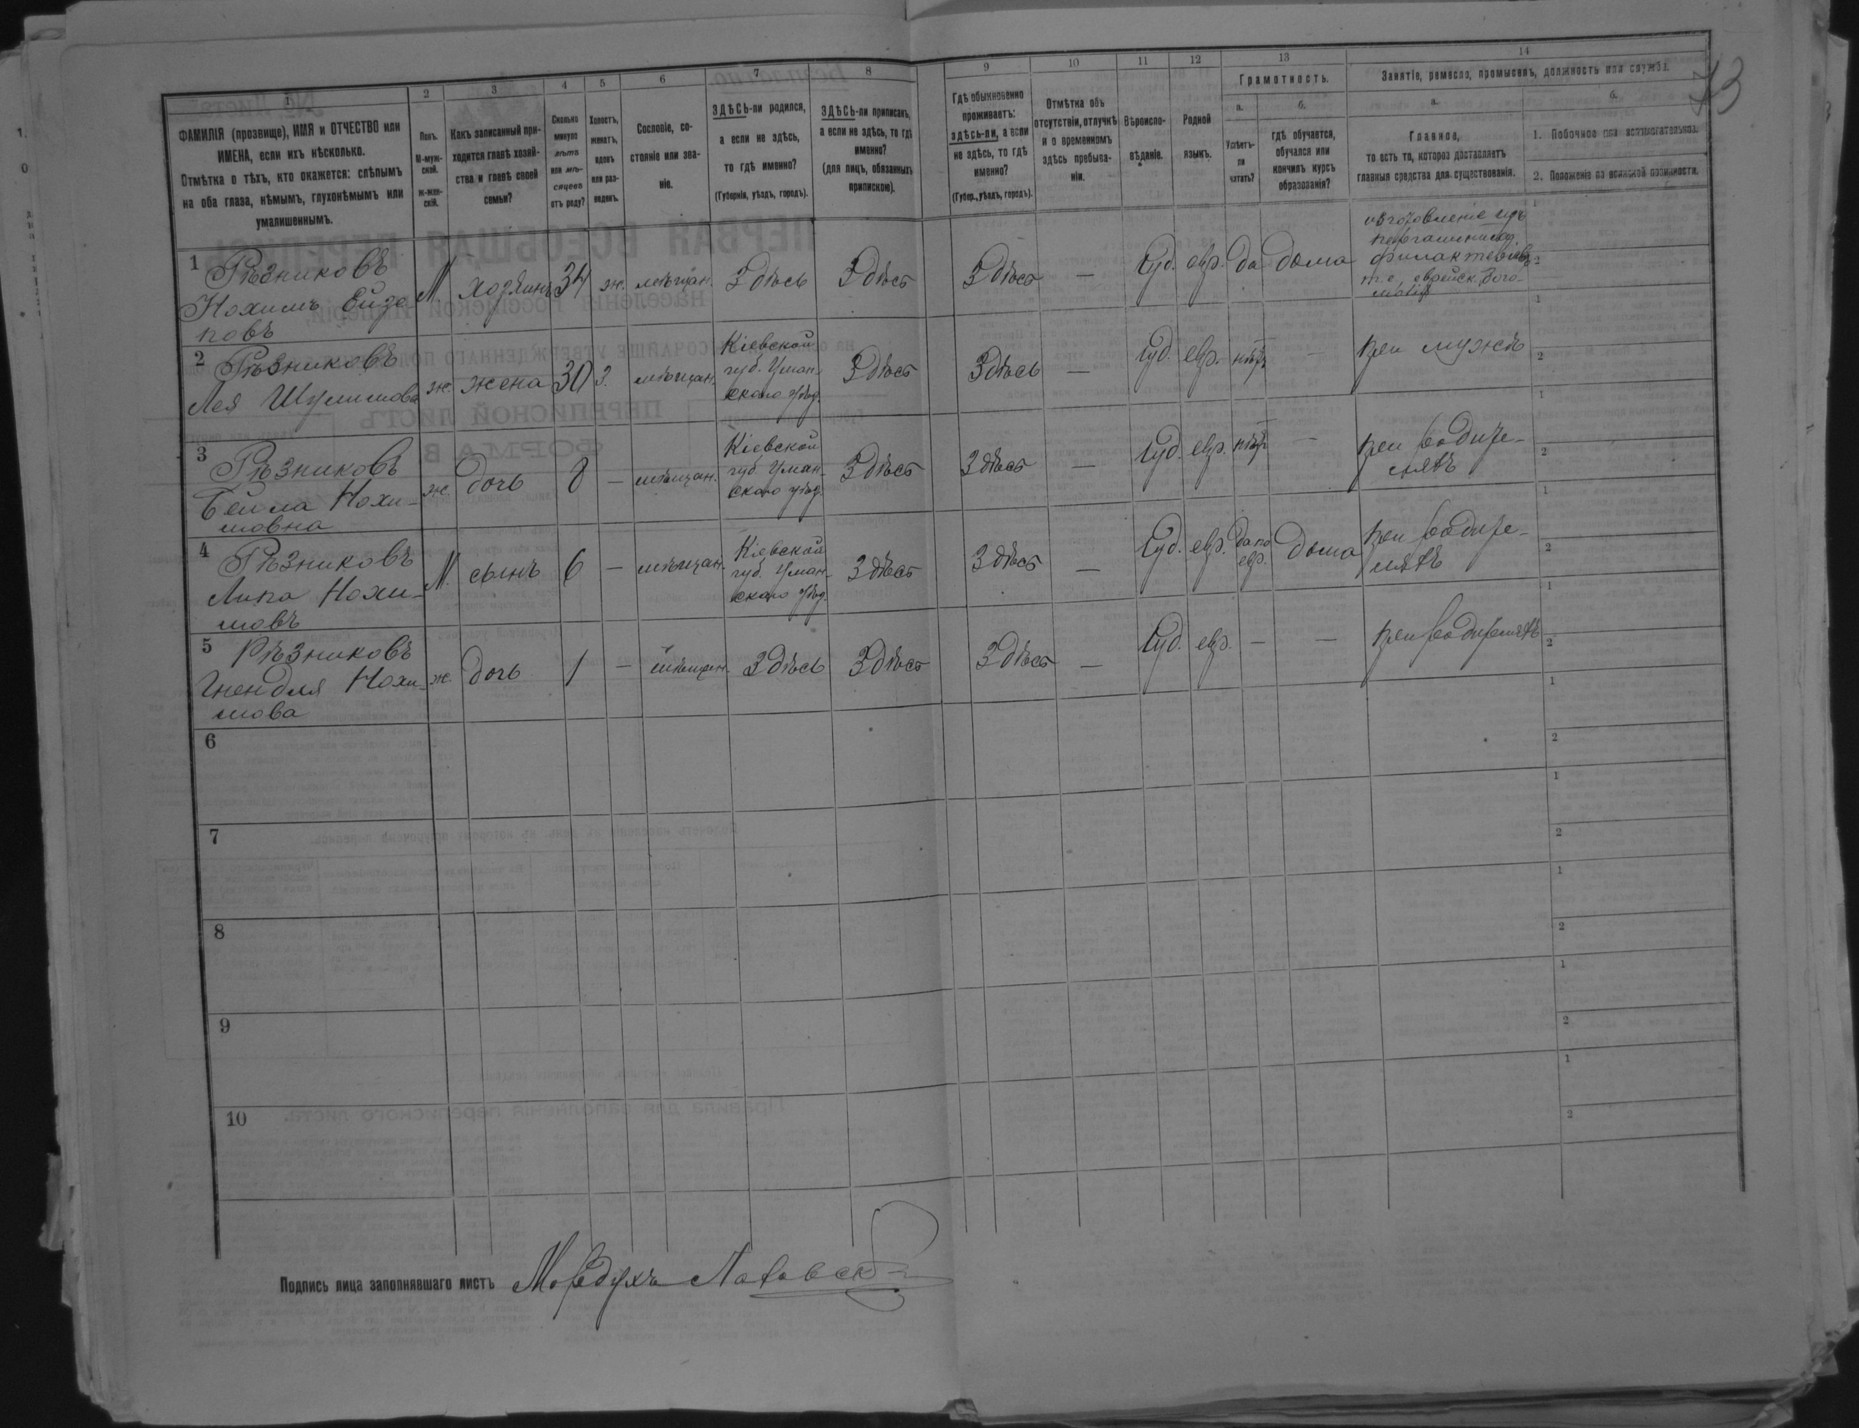 73
1 2 3 4 5 6 7 8 9 10 11 12 13 14
ФАМИЛІЯ (прозвище), ИМЯ и ОТЧЕСТВО или
ИМЕНА, если ихъ нѣсколько.
Отмѣтка о тѣхъ, кто окажется: слѣпымъ
на оба глаза, нѣмымъ, глухонѣмымъ или
умалишеннымъ.
Полъ.
М-муж-
ской.
Ж-жен-
скій.
Какъ записанный при-
ходится главѣ хозяй-
ства и главѣ своей
семьи?
Сколько
минуло
лѣтъ
или мѣ-
сяцевъ
отъ роду?
Холостъ,
женатъ,
вдовъ
или раз-
веденъ.
Сословіе, со-
стояніе или зва-
ніе.
ЗДѢСЬ-ли родился,
а если не здѣсь,
то гдѣ именно?
(Губернія, уѣздъ, городъ).
ЗДѢСЬ-ли приписанъ,
а если не здѣсь, то гдѣ
именно?
(для лицъ, обязанныхъ
припискою).
Гдѣ обыкновенно
проживаетъ:
здѣсь-ли, а если
не здѣсь, то гдѣ
именно?
(Губер., уѣздъ, городъ).
Отмѣтка объ
отсутствіи, отлучкѣ
и о временномъ
здѣсь пребыва-
ніи.
Вѣроиспо-
вѣданіе.
Родной
языкъ.
Грамотность.
а. б.
Умѣетъ-
ли
читать?
гдѣ обучается,
обучался или
кончилъ курсъ
образованія?
Занятіе, ремесло, промыселъ, должность или служба.
а. б.
Главное,
то есть то, которое доставляетъ
главныя средства для существованія.
1. Побочное или вспомогательное.
2. Положеніе по воинской повинности.
1 Рѣзниковъ
Нохимъ Ейзе
ковъ
М. хозяинъ 34 ж. мѣщан. Здѣсь Здѣсь Здѣсь — Іуд. евр. да дома
изготовленіе изъ
пергамента
т. е. еврейск. бого-
2 Рѣзниковъ
Лея Шулимова
ж. жена 30 з. мѣщан.
Кіевской
губ. Уман-
скаго уѣзд.
Здѣсь Здѣсь — Іуд. евр. нѣтъ — при мужѣ
3 Рѣзниковъ
Бейла Нохи-
мовна
ж. дочь 8 — мѣщан.
Кіевской
губ. Уман-
скаго уѣзд.
Здѣсь Здѣсь — Іуд. евр. нѣтъ —
при родите-
ляхъ
4 Рѣзниковъ
Липа Нохи-
мовъ
М. сынъ 6 — мѣщан.
Кіевской
губ. Уман-
скаго уѣзд.
Здѣсь Здѣсь — Іуд. евр. да по
евр.
дома
при родите-
ляхъ
5 Рѣзниковъ
Гнендля Нохи-
мова
ж. дочь 1 — мѣщан. Здѣсь Здѣсь Здѣсь — Іуд. евр. — — при родителяхъ
6
7
8
9
10
Подпись лица заполнявшаго листъ Мордухъ